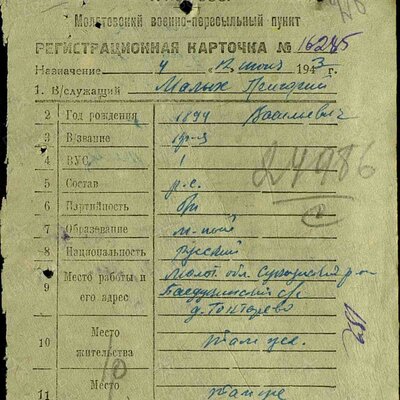 Молотовский военно-пересыльный пункт
РЕГИСТРАЦИОННАЯ КАРТОЧКА № 16245
Назначение 4 12 июня 1943 г.
1. В/служащий Малых Григорий
2 Год рождения 1899 Васильевич
3 В/звание кр-ц
4 ВУС 1
24986
5 Состав р.с.
6 Партийность б/п
7 Образование
8 Национальность русский
9 Место работы и его адрес Молот. обл. Суксунский р-он
с/с
д. Токтарево
10 Место жительства там же
11 Место там же